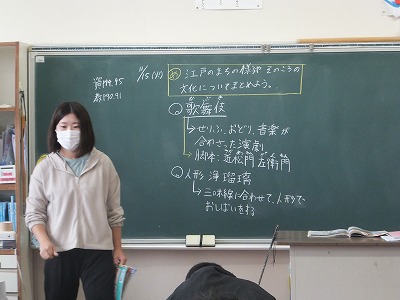 11/15(火)
資P94.95
教P90.91
め 江戸のまちの様子やそのころの
文化についてまとめよう。
歌舞伎
→せりふ、おどり、音楽が
合わさった演劇
→脚本:近松門左衛門
人形浄瑠璃
→三味線に合わせて、人形で
おしばいをする